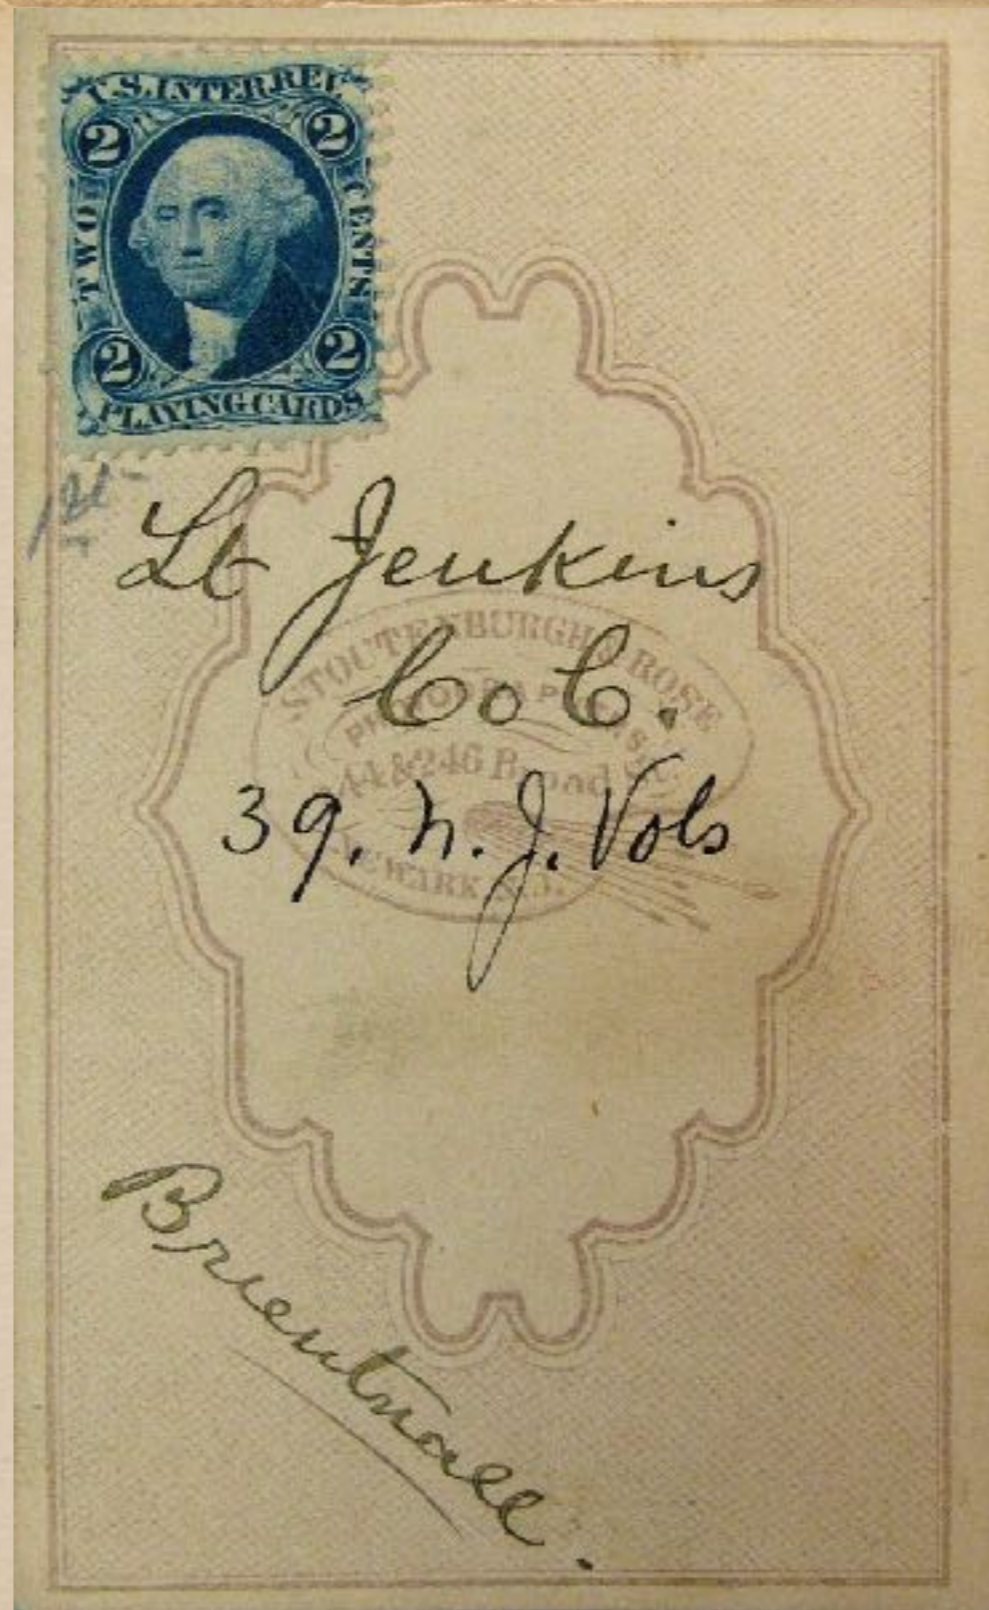 U.S. INTER. REV.
2 2
TWO CENTS
2 2
PLAYING CARDS
Lt Jenkins
Co C.
39. N. J. Vols
STOUTENBURGH & ROSE
PHOTOGRAPHERS
244 & 246 Broad St.
NEWARK N.J.
Brientnall.